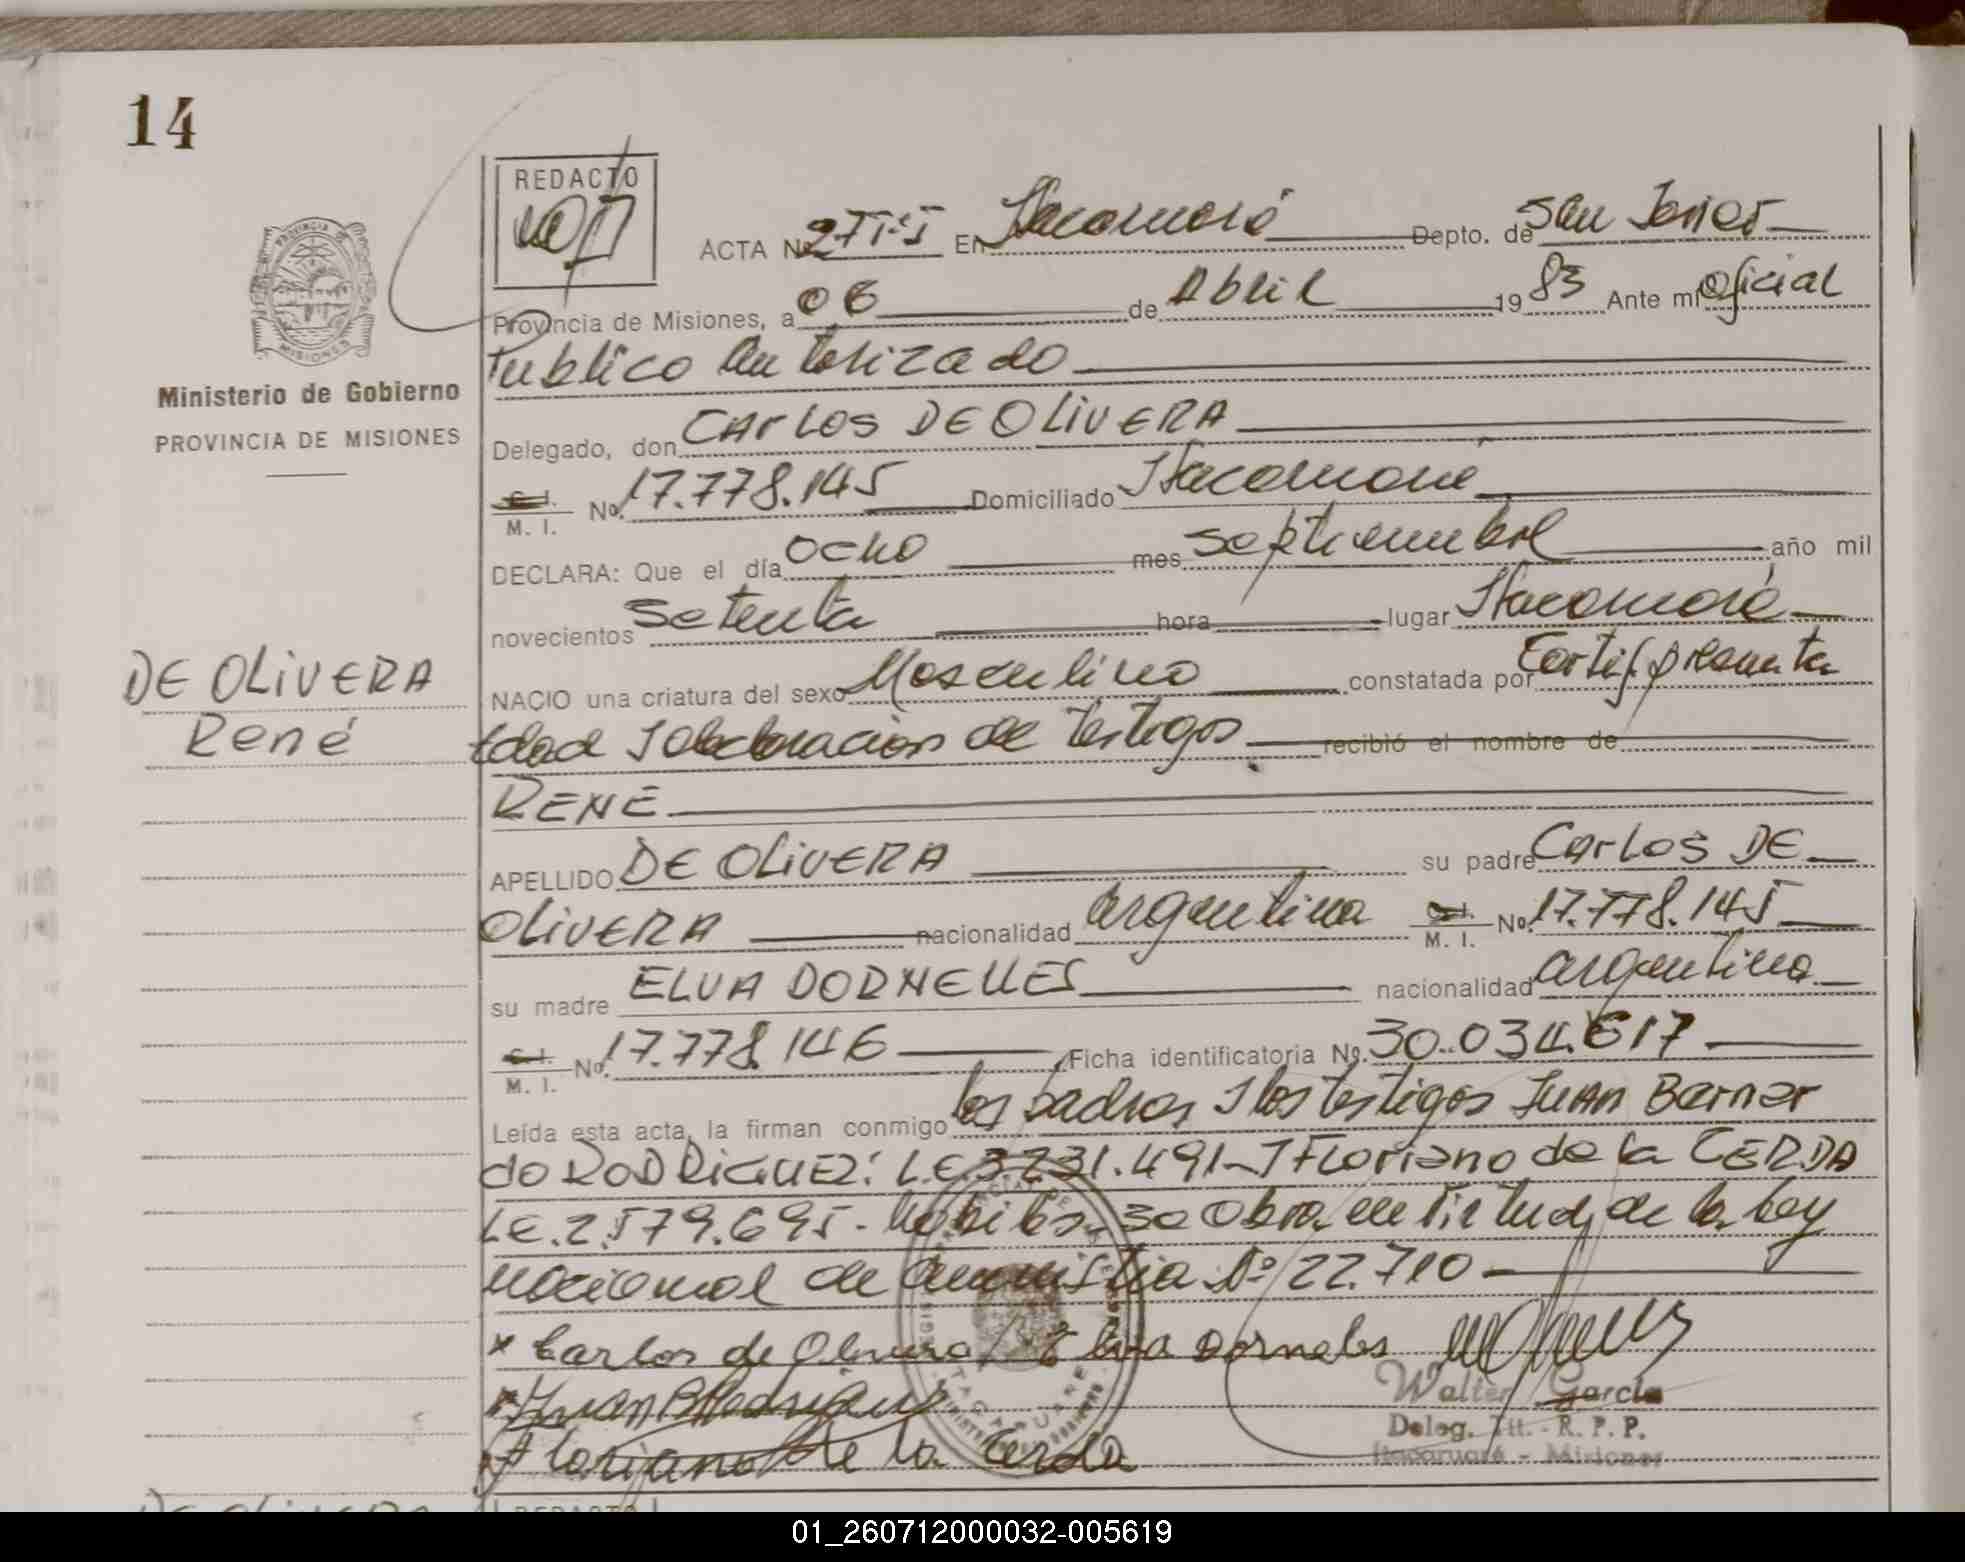 14
REDACTO
ACTA Nº 27 T:I En Itacaruaré Depto. de San Javier
Provincia de Misiones, a 06 de Abril 19 83 Ante mi Oficial
Publico Autorizado
Ministerio de Gobierno
PROVINCIA DE MISIONES
Delegado, don CARLOS DE OLIVERA
C. I.
M. I. No. 17.778.145 Domiciliado Itacaruaré
DECLARA: Que el día ocho mes septiembre año mil
novecientos setenta hora lugar Itacaruaré
DE OLIVERA
René
NACIO una criatura del sexo Masculino constatada por Certif. presunta
Edad I declaracion de testigos recibió el nombre de
RENE
APELLIDO DE OLIVERA su padre CARLOS DE
OLIVERA nacionalidad argentina C. I.
M. I. No. 17.778.145
su madre ELVA DORNELLES nacionalidad argentina
C. I.
M. I. No. 17.778.146 Ficha identificatoria No. 30.034.617
Leída esta acta, la firman conmigo los padres I los testigos JUAN Bernar
do RODRIGUEZ: L.E. 3.231.491 - I Floriano de la CERDA
L.E. 2.579.695 - habiles. Se Obra en virtud de la Ley
nacional de amnistia Nº 22.710
x Carlos de Olivera / Elva Dorneles
x Juan B Rodriguez
x Floriano de la Cerda
Walter García
Deleg. Tit. - R. P. P.
Itacaruaré - Misiones
DE OLIVERA
REDACTO
01_260712000032-005619